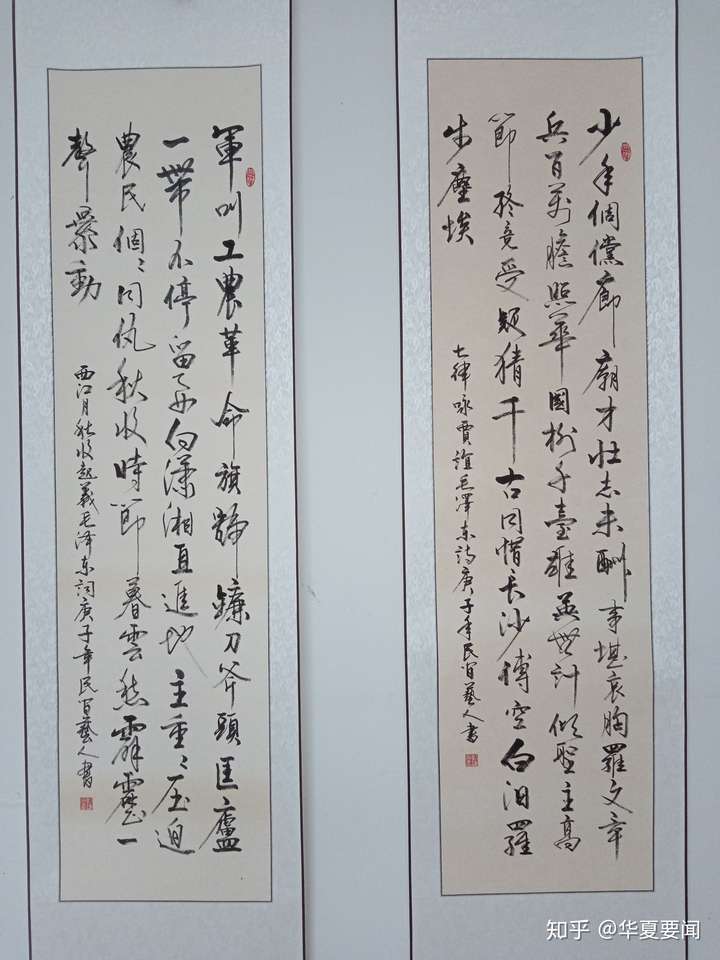 少年倜儻廊廟才壯志未酬事堪哀胸羅文章
兵百萬膽照華國樹千臺雄英無計傾聖主高
節終竟受疑猜千古同惜长沙傅空白汨羅
步塵埃
七律咏賈誼毛澤东詩庚子年民间藝人書
軍叫工農革命旗號鐮刀斧頭匡廬
一帶不停留要向瀟湘直進地主重〻壓迫
農民個〻同仇秋收時節暮雲愁霹靂一
聲暴動
西江月秋收起義毛泽东詞庚子年民间藝人書
知乎 @华夏要闻